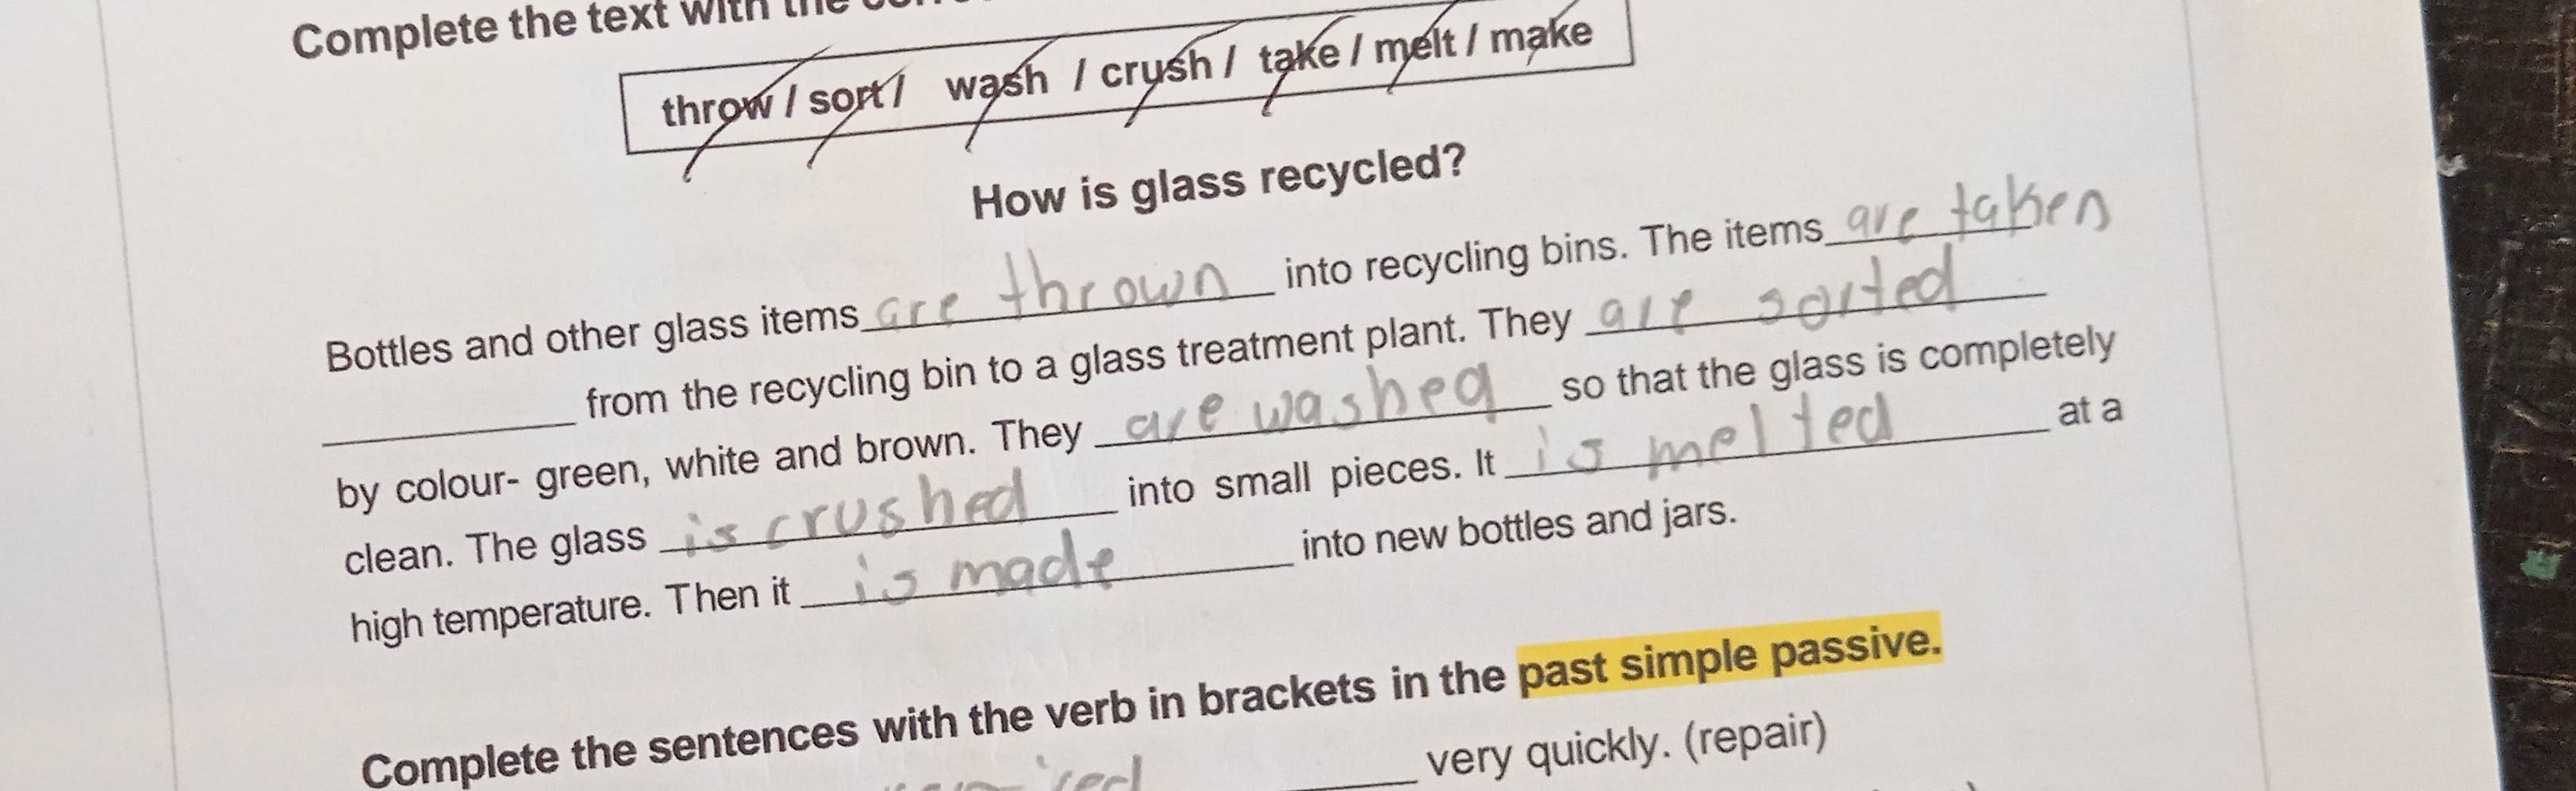 Complete the text with the
throw / sort / wash / crush / take / melt / make
How is glass recycled?
Bottles and other glass items are thrown into recycling bins. The items are taken
from the recycling bin to a glass treatment plant. They are sorted
by colour- green, white and brown. They are washed so that the glass is completely
clean. The glass is crushed into small pieces. It is melted at a
high temperature. Then it is made into new bottles and jars.
Complete the sentences with the verb in brackets in the past simple passive.
very quickly. (repair)